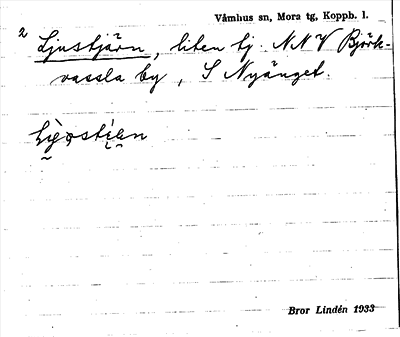 Våmhus sn, Mora tg, Koppb. l.
2 Ljustjärn, liten tj. NNV Björk-
vassla by, S Nyänget.
Bror Lindén 1933